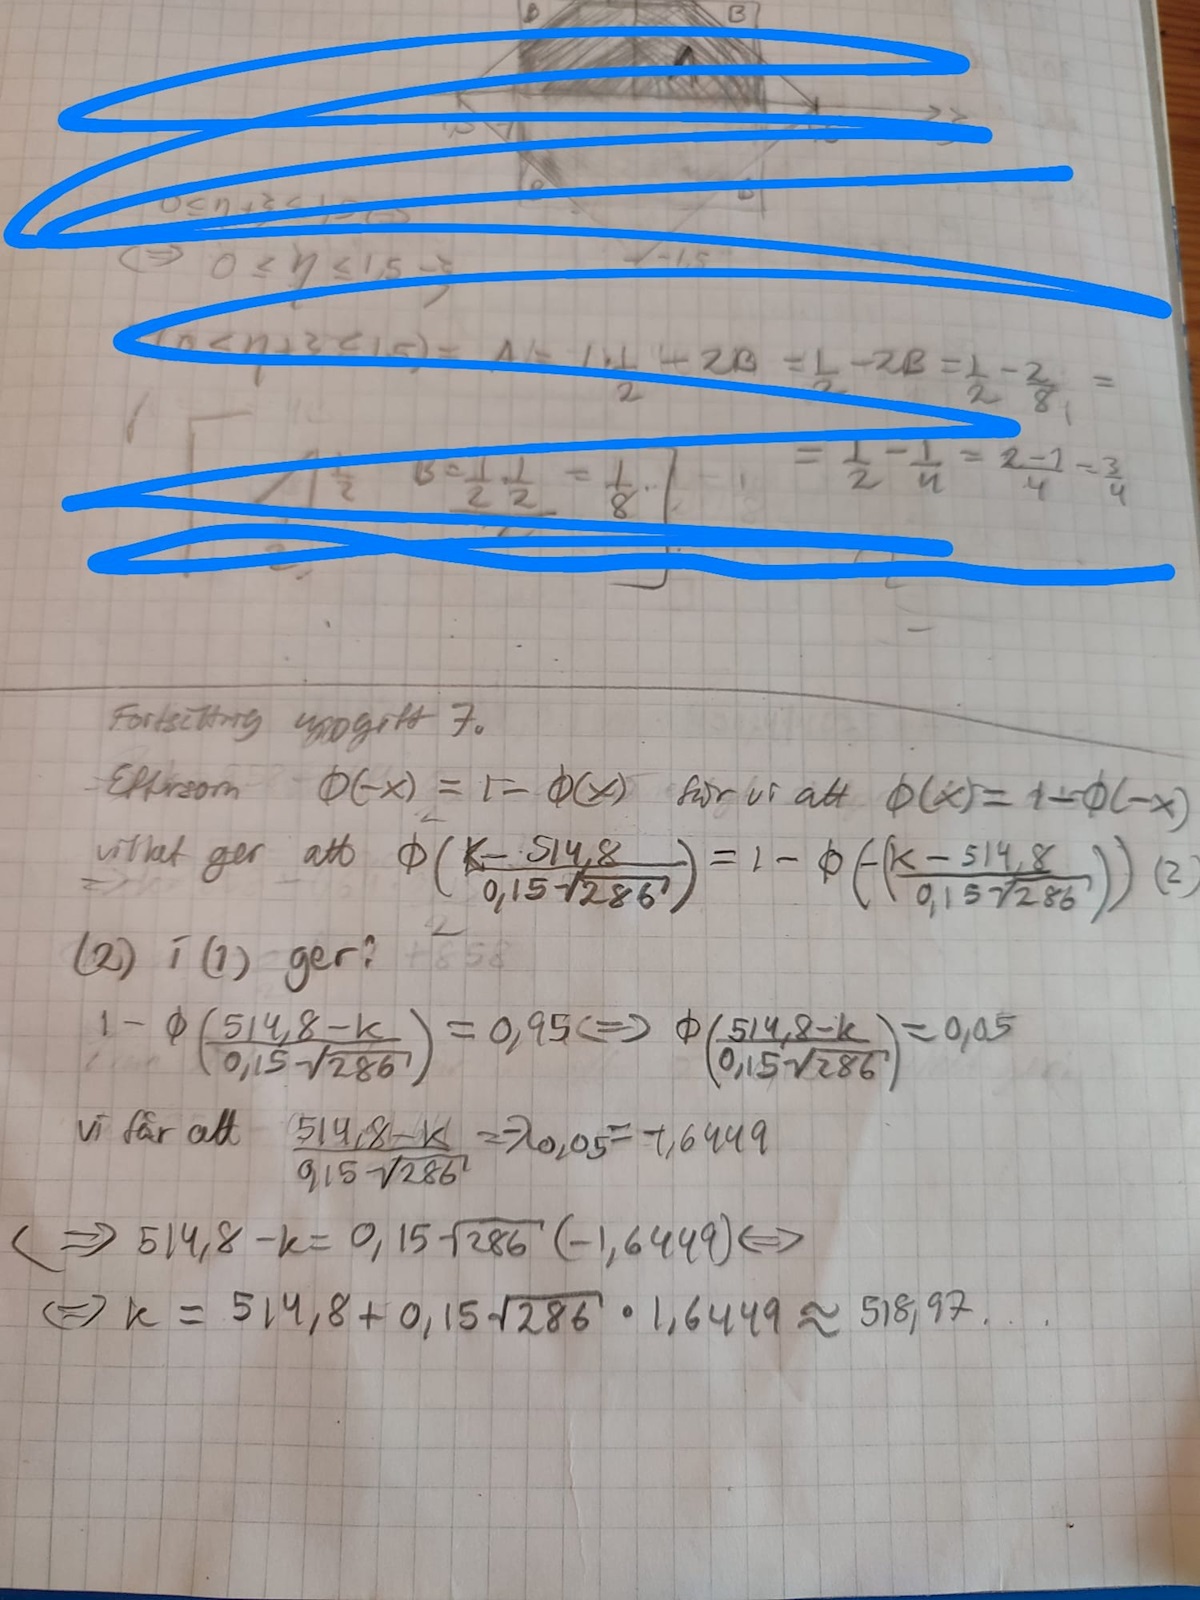 B
B
A
B
B
-1,5
0 ≤ η+ξ ≤ 1,5
⟺ 0 ≤ η ≤ 1,5 - ξ
(0 ≤ η+ξ ≤ 1,5) = A = 1·1/2 + 2B = 1/2 - 2B = 1/2 - 2/8 =
1/2 B = 1/2 · 1/2 = 1/8
= 1/2 - 1/4 = 2-1/4 = 3/4
Fortsättning uppgift 7.
Eftersom ϕ(-x) = 1 - ϕ(x) får vi att ϕ(x) = 1 - ϕ(-x)
vilket ger att ϕ((k - 514,8)/(0,15√286)) = 1 - ϕ(-((k - 514,8)/(0,15√286))) (2)
(2) i (1) ger:
1 - ϕ((514,8 - k)/(0,15√286)) = 0,95 ⟺ ϕ((514,8 - k)/(0,15√286)) = 0,05
vi får att (514,8 - k)/(0,15√286) = -λ0,05 = -1,6449
⟺ 514,8 - k = 0,15√286 (-1,6449) ⟺
⟺ k = 514,8 + 0,15√286 · 1,6449 ≈ 518,97....